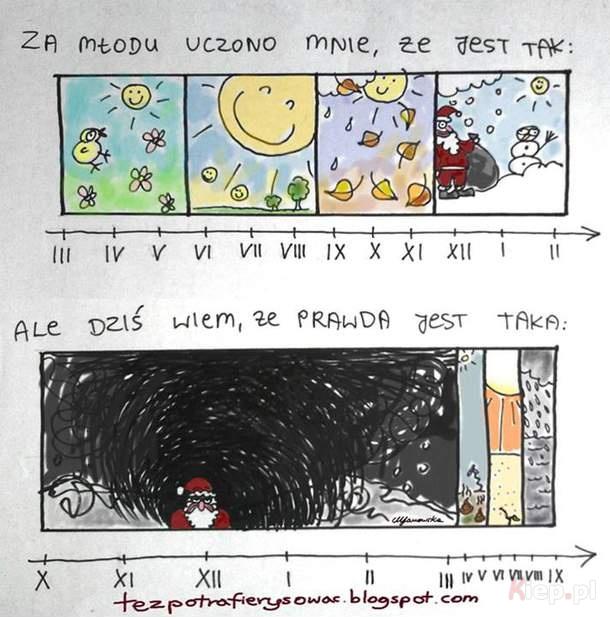 ZA MŁODU UCZONO MNIE, ŻE JEST TAK:
III IV V VI VII VIII IX X XI XII I II
ALE DZIŚ WIEM, ŻE PRAWDA JEST TAKA:
X XI XII I II III IV V VI VII VIII IX
Kiep.pl
tezpotrafierysowac.blogspot.com